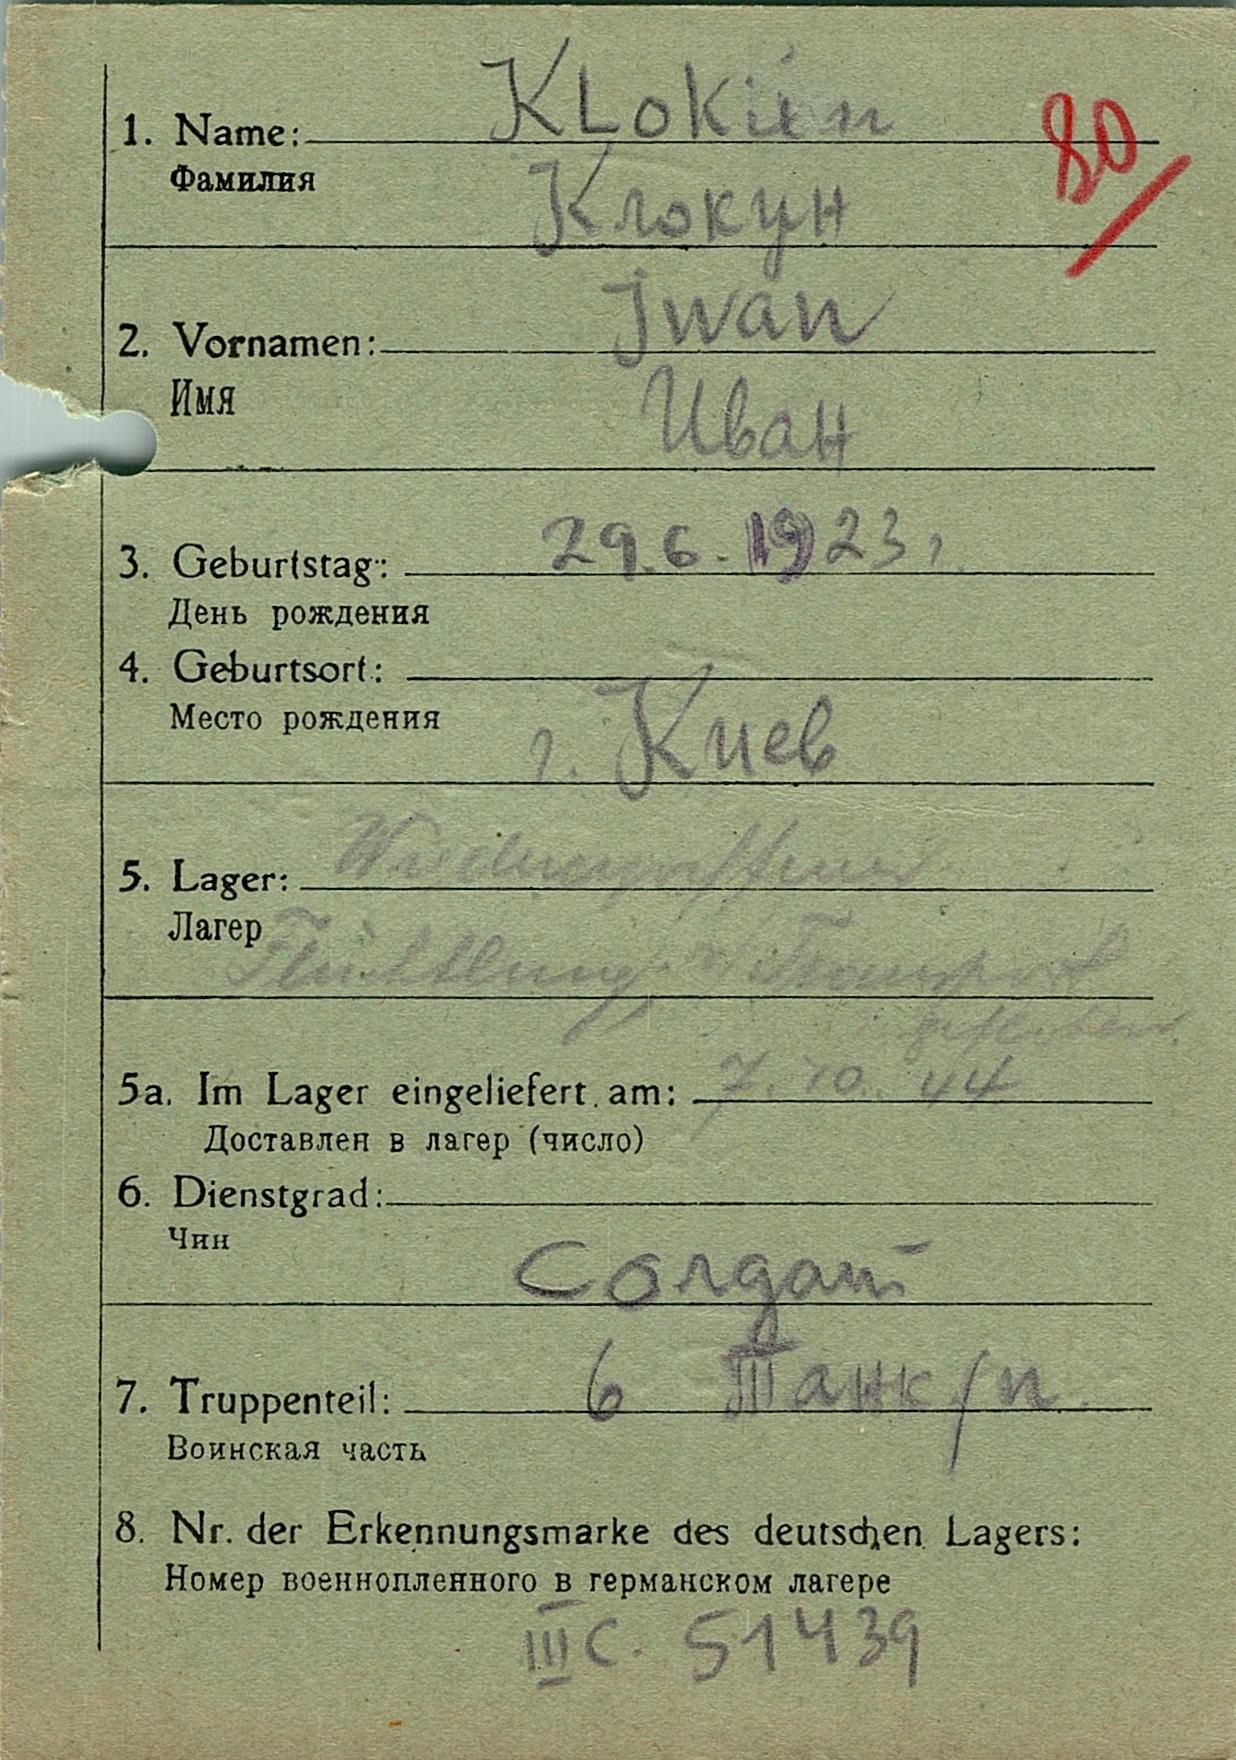 1. Name: KLOKiin
80
Фамилия
Клокун
2. Vornamen: Jwan
Имя
Иван
3. Geburtstag: 29.6.1923,
День рождения
4. Geburtsort:
Место рождения
г. Киев
5. Lager: Wiederergriffener
Лагер
Flüchtling, v/Transport
geflohen.
5a. Im Lager eingeliefert am: 7.10.44
Доставлен в лагер (число)
6. Dienstgrad:
Чин
Солдат
7. Truppenteil: 6 Танк/п.
Воинская часть
8. Nr. der Erkennungsmarke des deutschen Lagers:
Номер военнопленного в германском лагере
III C. 51439